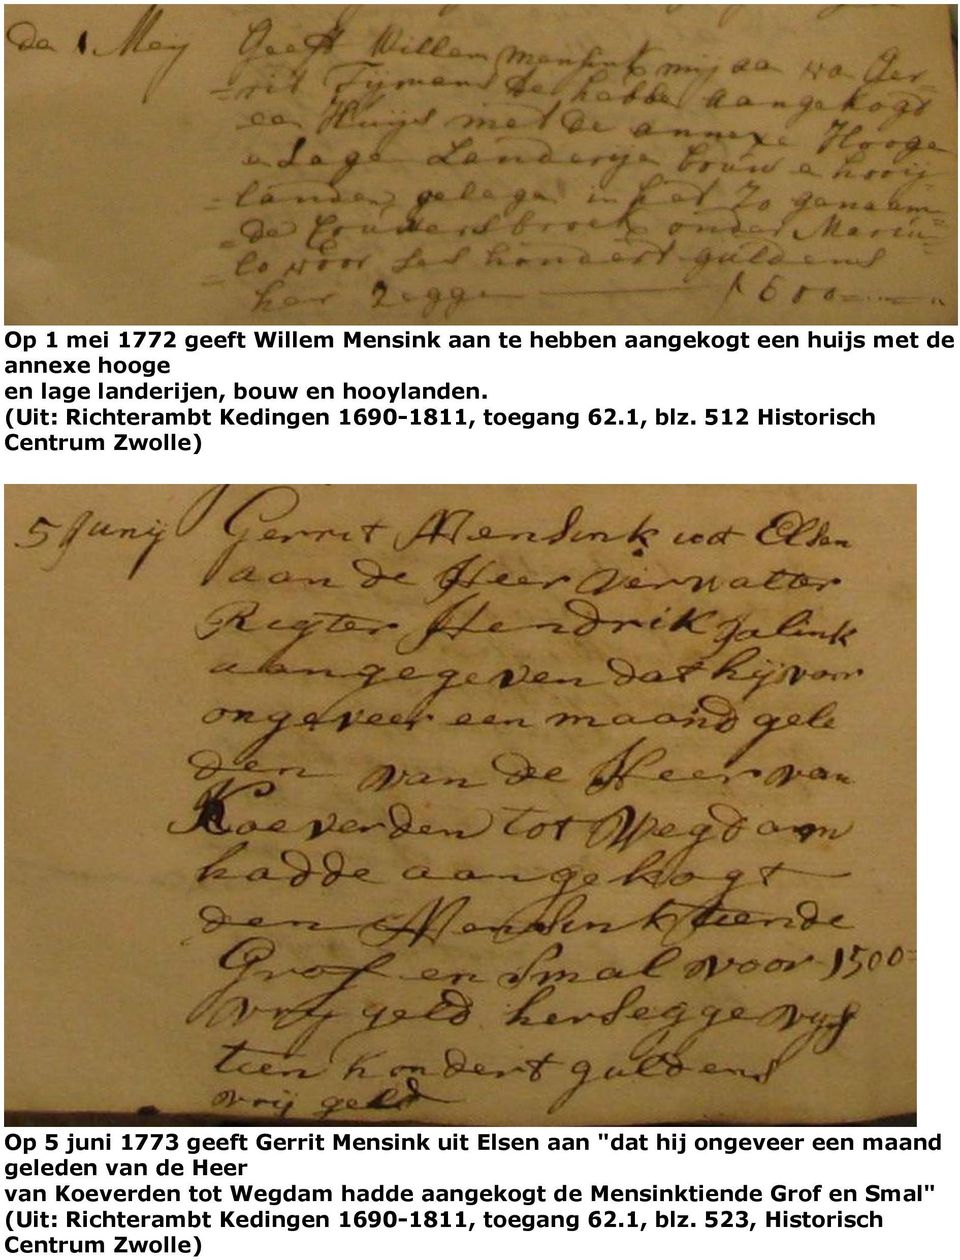 de 1 Meij Geeft Willem Mensink mij aa wa Ger
=rit Tijmans te hebbe aangekogt
ee Huijs met de annexe Hooge
e Lage Landerije bouw e hooij
=landen gelege in het Zo genaam=
=de Brouwersbroek onder Marku=
=lo voor ses hondert guldens
her Zegge ——— f 600=...—"
Op 1 mei 1772 geeft Willem Mensink aan te hebben aangekogt een huijs met de
annexe hooge
en lage landerijen, bouw en hooylanden.
(Uit: Richterambt Kedingen 1690-1811, toegang 62.1, blz. 512 Historisch
Centrum Zwolle)
5 Junij Gerrit Mensink uit Elsen
aan de Heer Verwalter
Rigter Hendrik Jalink
aangegeven dat hij voor
ongeveer een maand gele
den van de Heer van
Koeverden tot Wegdam
hadde aangekogt
den Mensink tiende
Grof en Smal voor 1500=
vrij geld hersegge vijf
tien hondert guldens
vrij geld
Op 5 juni 1773 geeft Gerrit Mensink uit Elsen aan "dat hij ongeveer een maand
geleden van de Heer
van Koeverden tot Wegdam hadde aangekogt de Mensinktiende Grof en Smal"
(Uit: Richterambt Kedingen 1690-1811, toegang 62.1, blz. 523, Historisch
Centrum Zwolle)